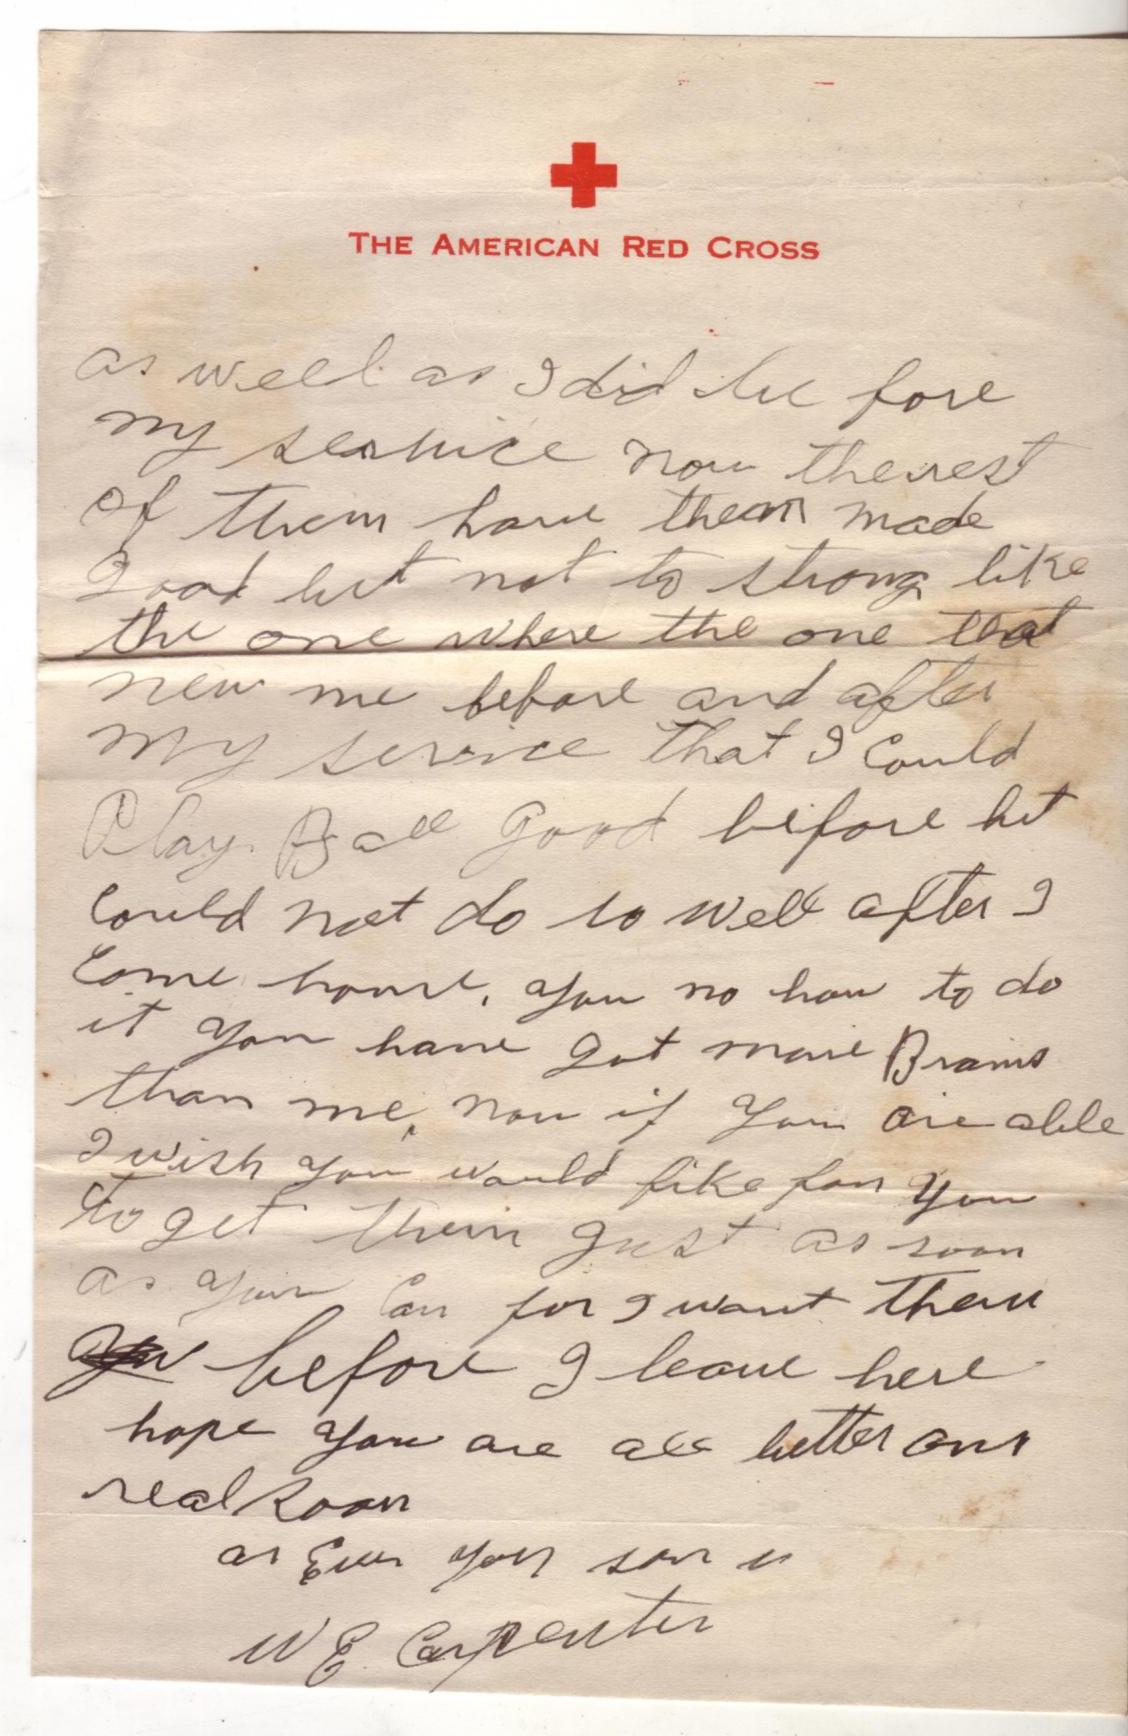 THE AMERICAN RED CROSS
as well as I did be fore
my searvice now the rest
of them have them made
Good but not to strong like
the one where the one that
new me before and after
my service that I Could
Play Ball good before but
Could not do so well after I
Come home. you no how to do
it you have got more Brains
than me, now if you are able
I wish you would like for you
to get them Just as soon
as you Can for I want them
before I leave here
hope you are all better
real soon
as Ever your son
W E Carpenter